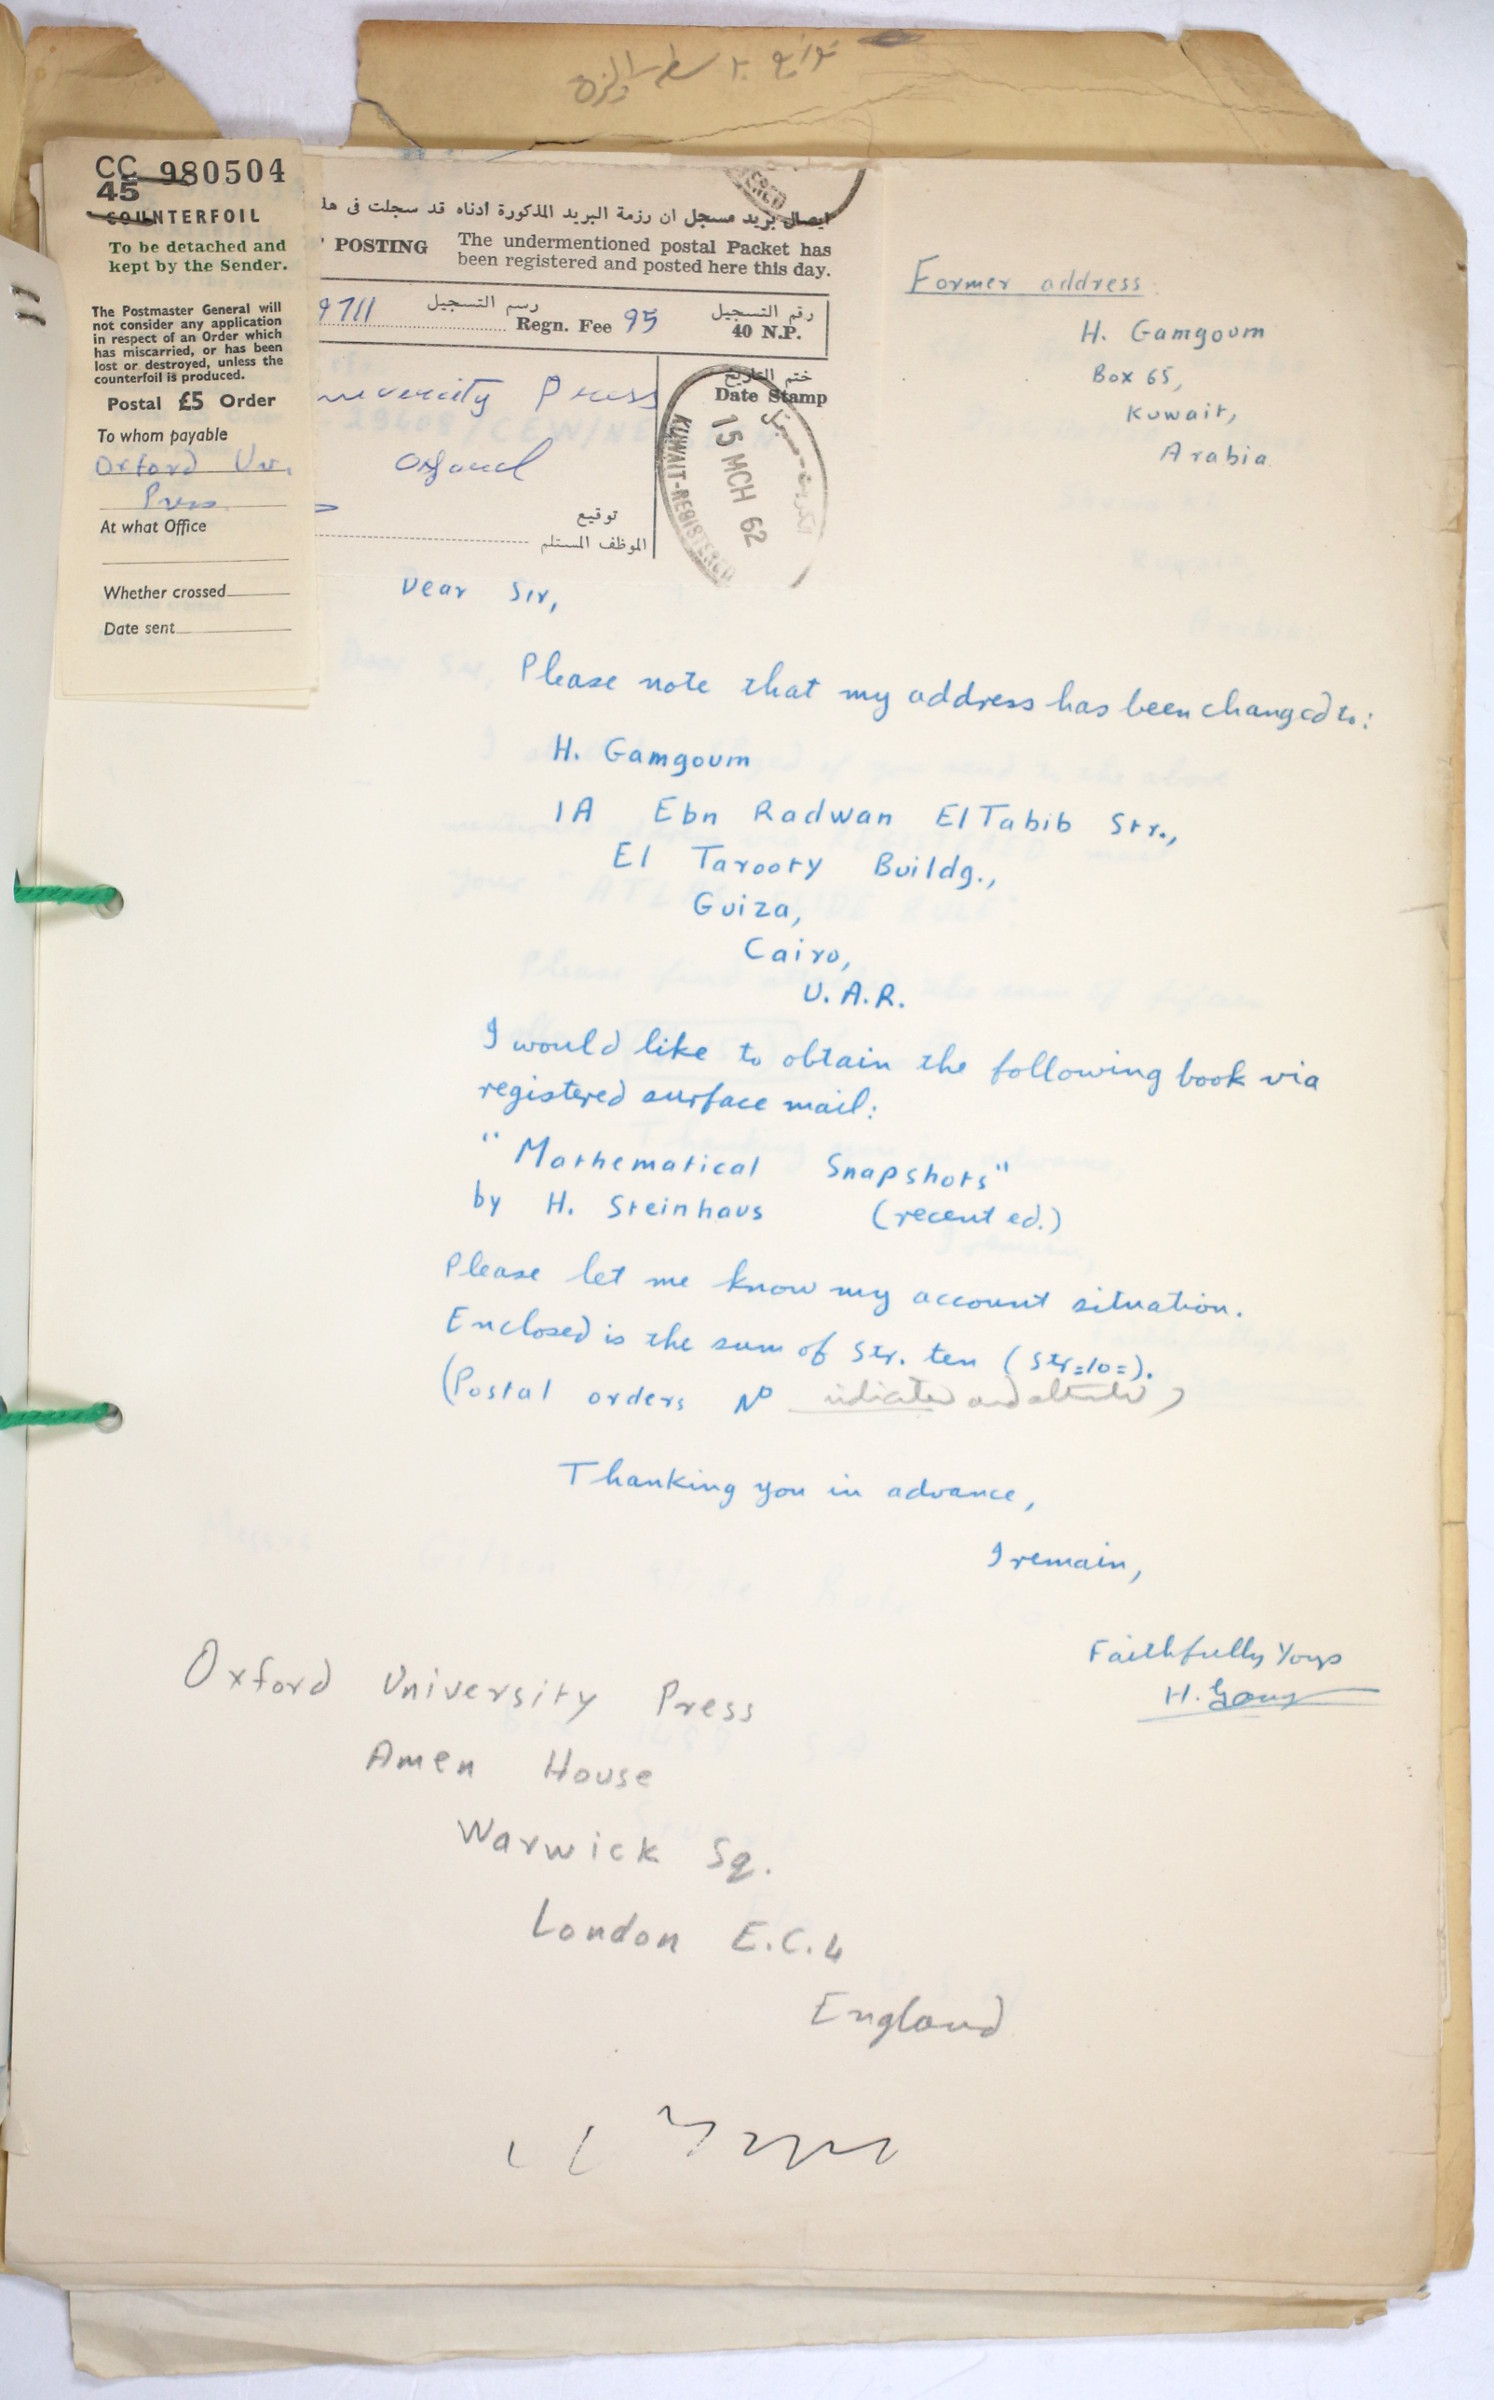 CC 980504
45
COUNTERFOIL
To be detached and
kept by the Sender.
The Postmaster General will
not consider any application
in respect of an Order which
has miscarried, or has been
lost or destroyed, unless the
counterfoil is produced.
Postal £5 Order
To whom payable
Oxford Uv.
Press
At what Office
Whether crossed
Date sent
ايصال بريد مسجل ان رزمة البريد المذكورة ادناه قد سجلت في
POSTING The undermentioned postal Packet has
been registered and posted here this day.
9711 رسم التسجيل Regn. Fee 95 رقم التسجيل
40 N.P.
University Press
Oxford
ختم التاريخ
Date Stamp
15 MCH 62
KUWAIT-REGISTERED
توقيع
الموظف المستلم
Former address:
H. Gamgoum
Box 65,
Kuwait,
Arabia.
Dear Sir,
Please note that my address has been changed to:
H. Gamgoum
1A Ebn Radwan El Tabib Str.,
El Tarooty Buildg.,
Guiza,
Cairo,
U.A.R.
I would like to obtain the following book via
registered surface mail:
"Mathematical Snapshots"
by H. Steinhaus (recent ed.)
Please let me know my account situation.
Enclosed is the sum of Str. ten (Str=10=).
(Postal orders No indicated and attached)
Thanking you in advance,
I remain,
Faithfully Yours
H. Gamg
Oxford University Press
Amen House
Warwick Sq.
London E.C.4
England